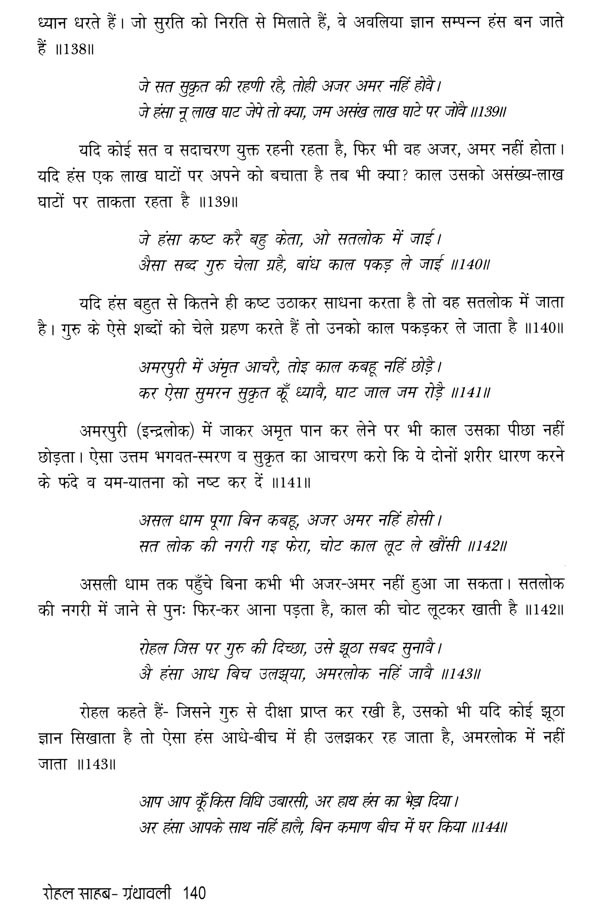 ध्यान धरते हैं। जो सुरति को निरति से मिलाते हैं, वे अवलिया ज्ञान सम्पन्न हंस बन जाते
हैं ॥138॥
जे सत सुकृत की रहणी रहै, तोही अजर अमर नहिं होवै।
जे हंसा नू लाख घाट जेपे तो क्या, जम असंख लाख घाटे पर जोवै ॥139॥
यदि कोई सत व सदाचरण युक्त रहनी रहता है, फिर भी वह अजर, अमर नहीं होता।
यदि हंस एक लाख घाटों पर अपने को बचाता है तब भी क्या? काल उसको असंख्य-लाख
घाटों पर ताकता रहता है ॥139॥
जे हंसा कष्ट करै बहु केता, ओ सतलोक में जाई।
अैसा सब्द गुरु चेला ग्रहै, बांध काल पकड़ ले जाई ॥140॥
यदि हंस बहुत से कितने ही कष्ट उठाकर साधना करता है तो वह सतलोक में जाता
है। गुरु के ऐसे शब्दों को चेले ग्रहण करते हैं तो उनको काल पकड़कर ले जाता है ॥140॥
अमरपुरी में अंमृत आचरै, तोइ काल कबहू नहिं छोड़ै।
कर ऐसा सुमरन सुकृत कूँ ध्यावै, घाट जाल जम रोड़ै ॥141॥
अमरपुरी (इन्द्रलोक) में जाकर अमृत पान कर लेने पर भी काल उसका पीछा नहीं
छोड़ता। ऐसा उत्तम भगवत-स्मरण व सुकृत का आचरण करो कि ये दोनों शरीर धारण करने
के फंदे व यम-यातना को नष्ट कर दें ॥141॥
असल धाम पूगा बिन कबहू, अजर अमर नहिं होसी।
सत लोक की नगरी गइ फेरा, चोट काल लूट ले खौंसी ॥142॥
असली धाम तक पहुँचे बिना कभी भी अजर-अमर नहीं हुआ जा सकता। सतलोक
की नगरी में जाने से पुनः फिर-कर आना पड़ता है, काल की चोट लूटकर खाती है ॥142॥
रोहल जिस पर गुरु की दिच्छा, उसे झूठा सबद सुनावै।
अै हंसा आध बिच उलझ्या, अमरलोक नहिं जावै ॥143॥
रोहल कहते हैं- जिसने गुरु से दीक्षा प्राप्त कर रखी है, उसको भी यदि कोई झूठा
ज्ञान सिखाता है तो ऐसा हंस आधे-बीच में ही उलझकर रह जाता है, अमरलोक में नहीं
जाता ॥143॥
आप आप कूँ किस विधि उबारसी, अर हाथ हंस का दिया।
अर हंसा आपके साथ नहिं हालै, बिन कमाण बीच में घर किया ॥144॥
रोहल साहब- ग्रंथावली 140